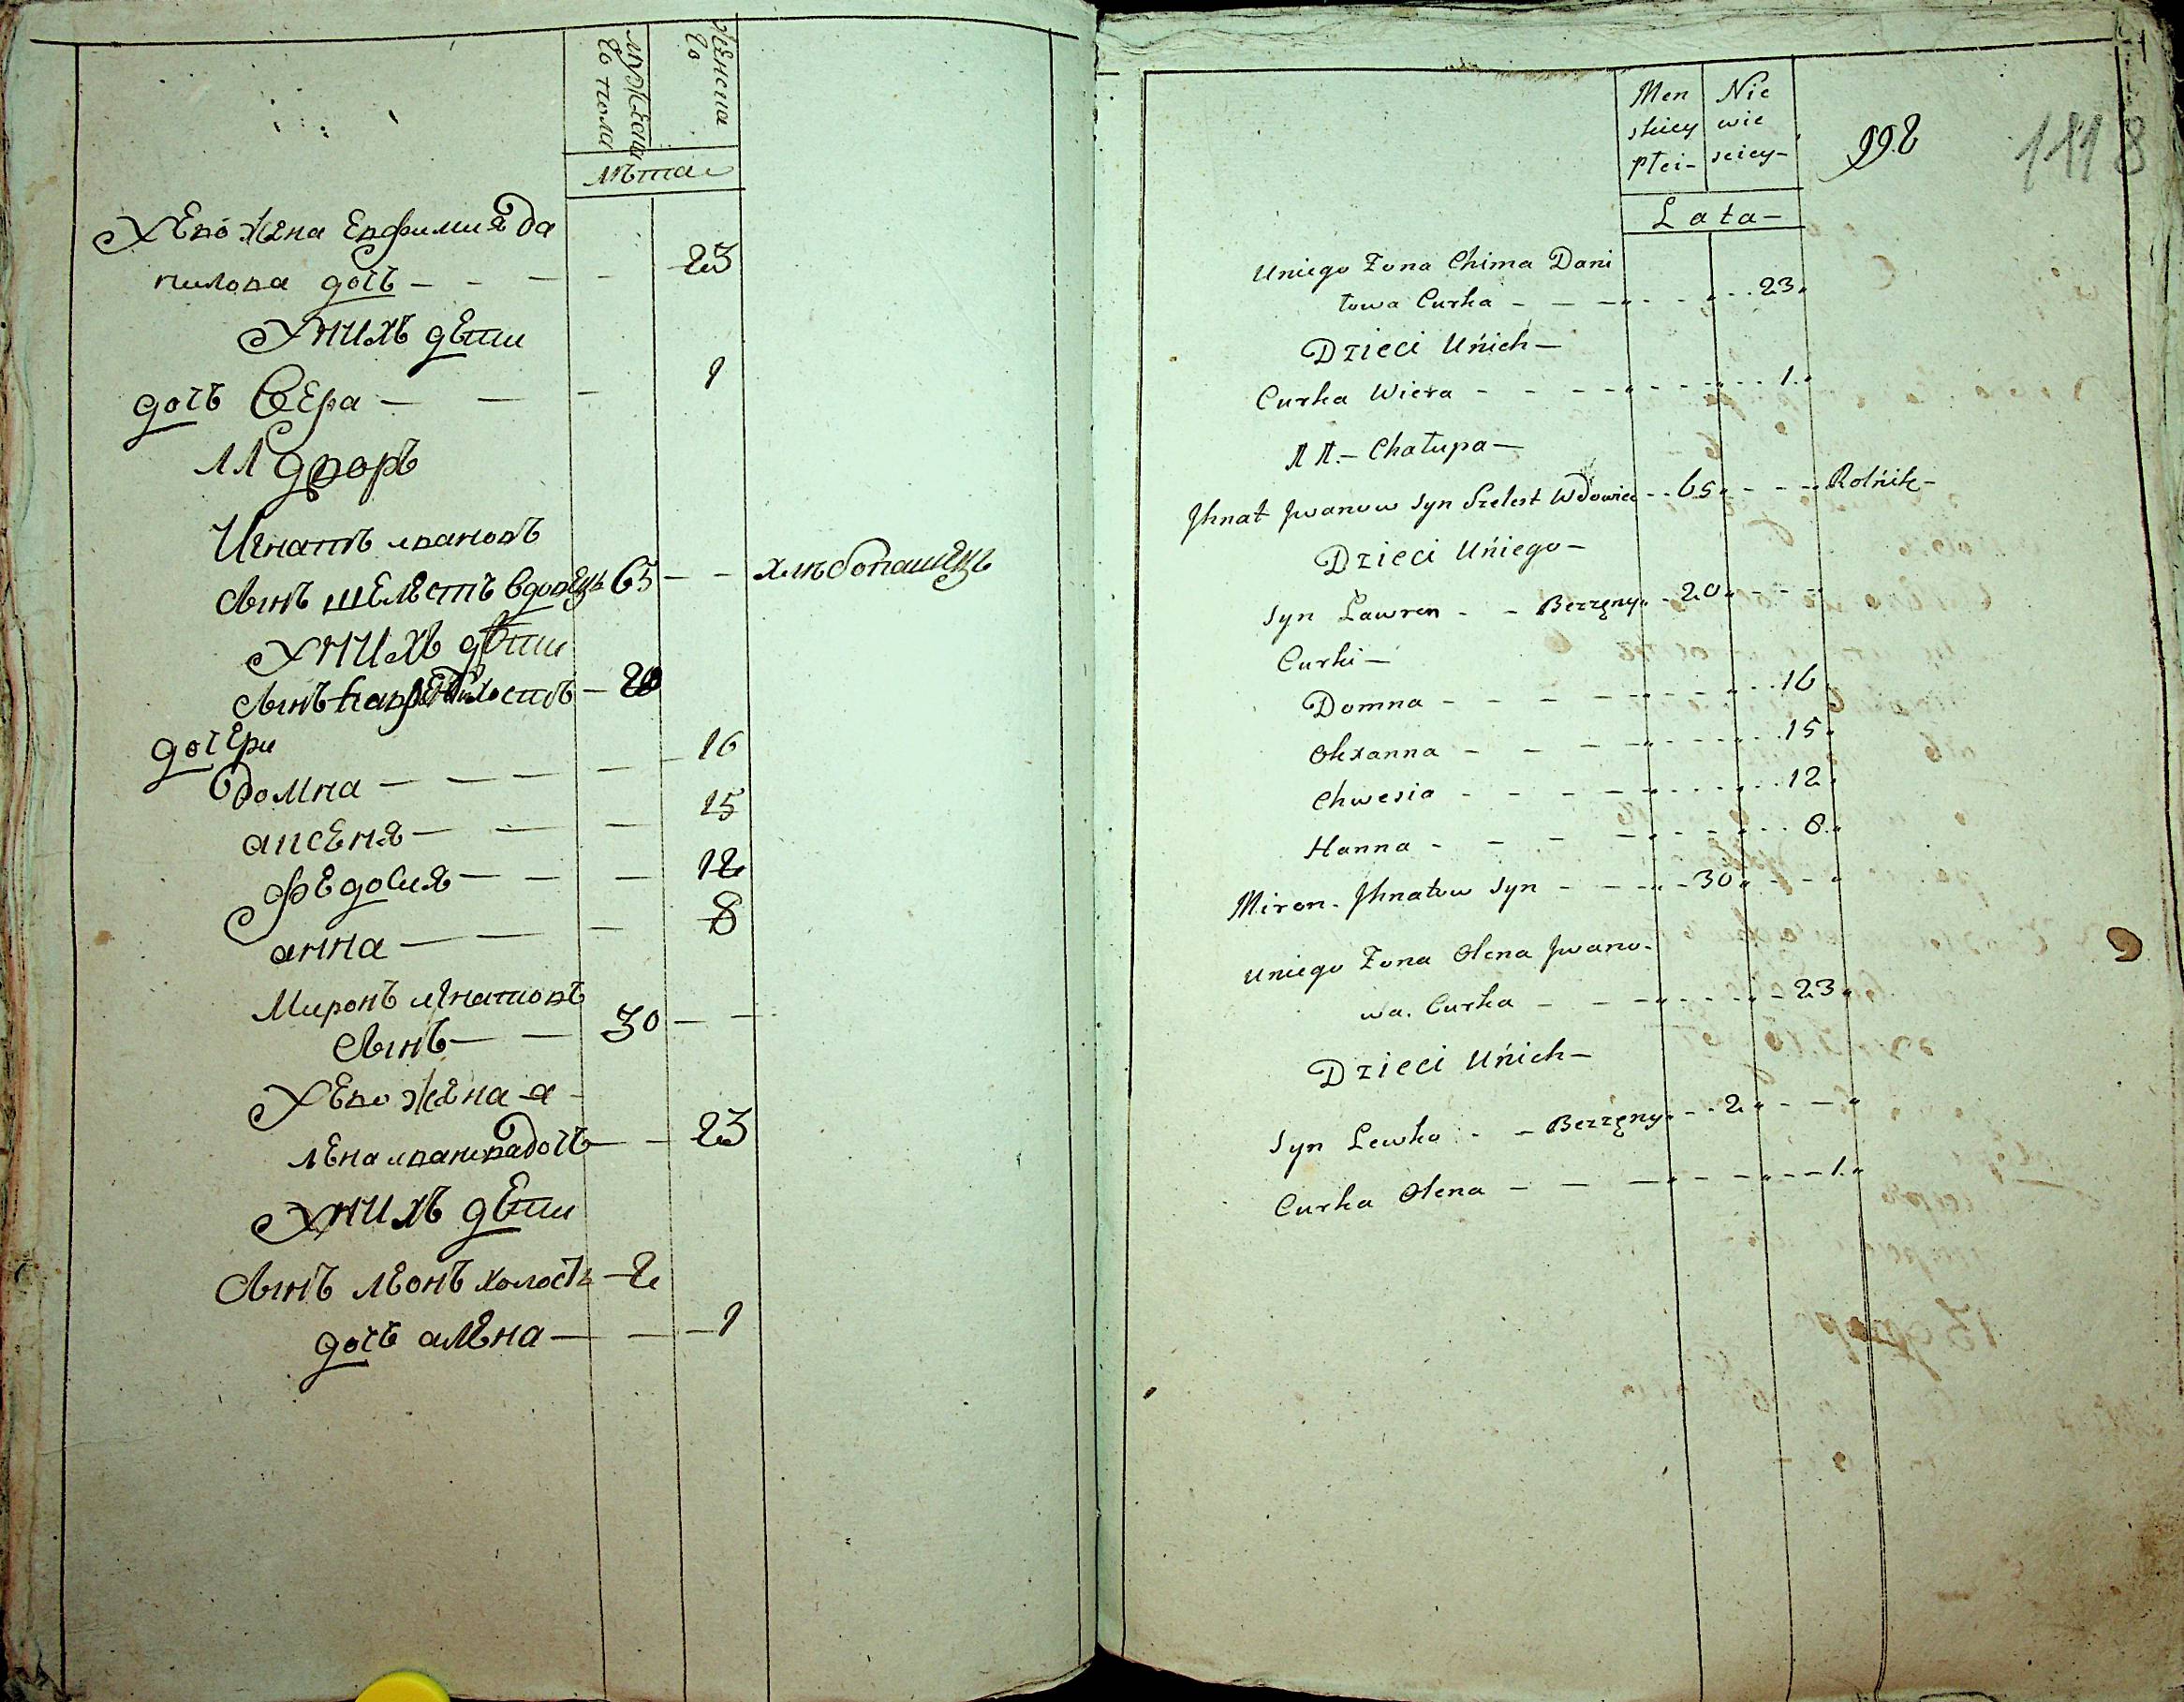 мужеска
го пола
женска
го
лѣта
У Его жена Евфимия да
нилова дочь 23
У них дети
дочь Вера 1
11 двор
Игнатъ иванов
Сынъ шелестъ вдовец 65 хлѣбопашец
У них дети
Сынъ 20
дочери
домна 16
аксеня 15
Федосия 12
анна 8
Миронъ игнатов
Сынъ 30
У Его жена а
лена иванова дочь 23
У них дети
Сынъ леонъ холостъ 2
дочь алена 1
Men Nie
skiey wie
Płci sciey
998
1118
Lata
Uniego Zona Chima Dani
łowa Curka 23
Dzieci Unich
Curka Wiera 1
11. Chałupa
Jhnat Jwanow Syn Szelest Wdowiec 65 Rolnik
Dzieci Uniego
Syn Lawren Bezżęny 20
Curki
Domna 16
Oksanna 15
Chwesia 12
Hanna 8
Miron Jhnatow Syn 30
Uniego Zona Olena Jwano
wa Curka 23
Dzieci Unich
Syn Lewko Bezżęny 2
Curka Olena 1